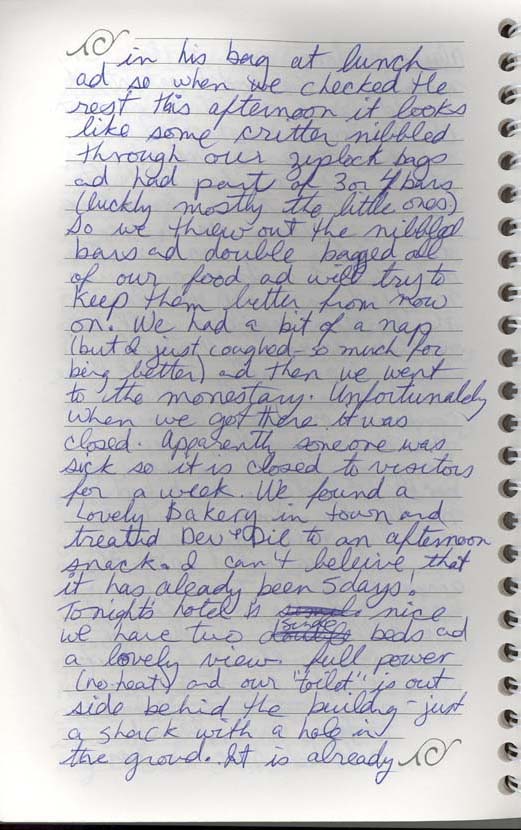 in his bag at lunch
ad so when we checked the
rest this afternoon it looks
like some critter nibbled
through our ziplock bags
ad had part of 3 or 4 bars
(luckly mostly the little ones)
So we threw out the nibbled
bars ad double bagged all
of our food ad will try to
keep them better from now
on. We had a bit of a nap
(but I just coughed - so much for
being better) ad then we went
to the monestary. Unfortunately
when we got there it was
closed. Apparently someone was
sick so it is closed to visitors
for a week. We found a
lovely Bakery in town and
treatd Dev + Dil to an afternoon
snack. I can't beleive that
it has aleady been 5 days!
Tonights hotel is nice
we have two single beds ad
a lovely view. full power
(no heat) and our "toilet" is out
side behind the building - just
a shack with a hole in
the groud. It is already